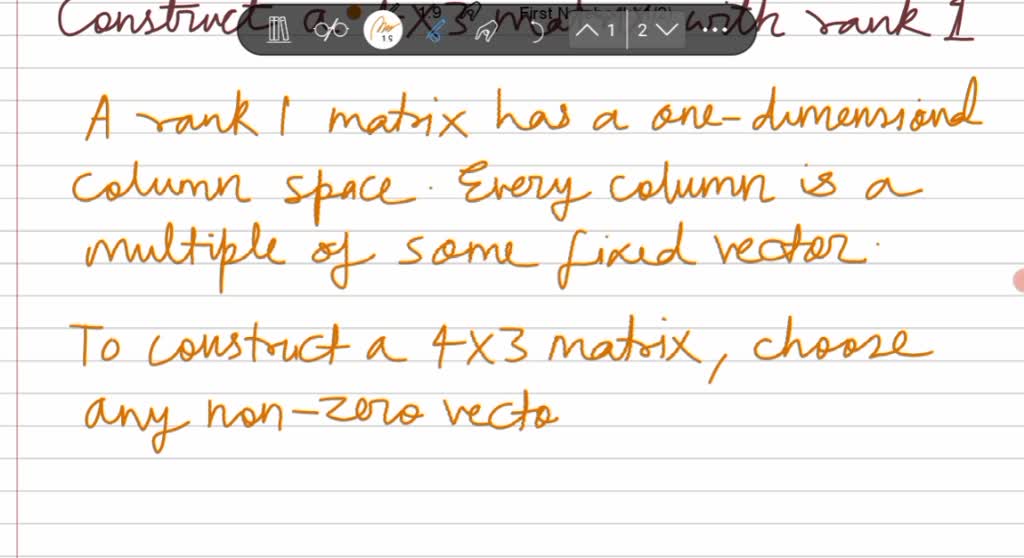 Construct a 4x3 with rank 1
1.9 First N
15 1 2
A rank 1 matrix has a one-dimensional
column space. Every column is a
multiple of some fixed vector.
To construct a 4x3 matrix, choose
any non-zero vecto